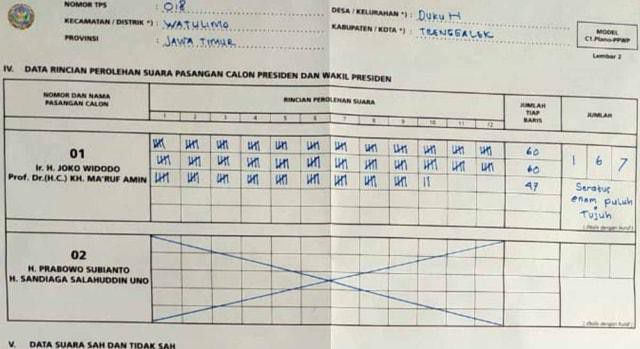 NOMOR TPS : 018
DESA / KELURAHAN *) : DUKUH
KECAMATAN / DISTRIK *) : WATULIMO
KABUPATEN / KOTA *) : TRENGGALEK
PROVINSI : JAWA TIMUR
MODEL
C1.Plano-PPWP
Lembar 2
IV. DATA RINCIAN PEROLEHAN SUARA PASANGAN CALON PRESIDEN DAN WAKIL PRESIDEN
NOMOR DAN NAMA
PASANGAN CALON
RINCIAN PEROLEHAN SUARA
JUMLAH
TIAP
BARIS
JUMLAH
1 2 3 4 5 6 7 8 9 10 11 12
01
Ir. H. JOKO WIDODO
Prof. Dr.(H.C.) KH. MA'RUF AMIN
60
60
47
1 6 7
Seratus
enam puluh
Tujuh
( ditulis dengan huruf )
02
H. PRABOWO SUBIANTO
H. SANDIAGA SALAHUDDIN UNO
( ditulis dengan huruf )
V. DATA SUARA SAH DAN TIDAK SAH